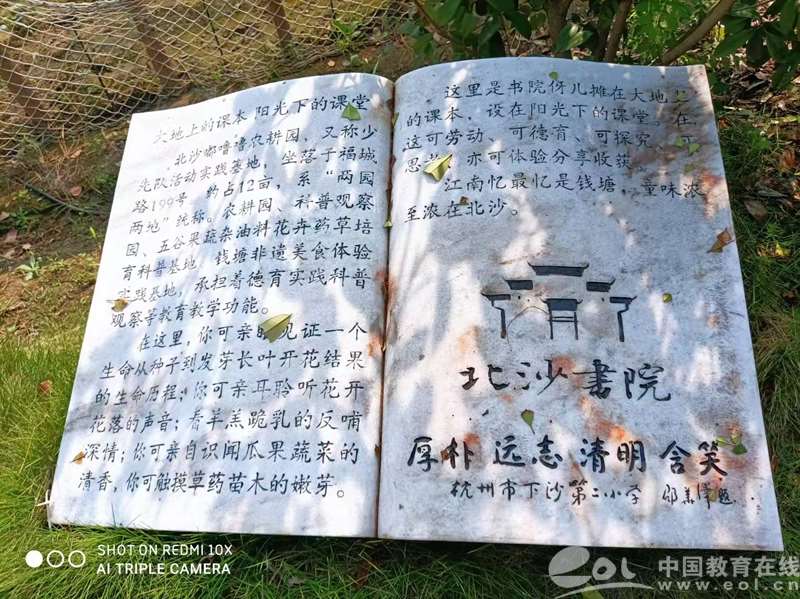 大地上的课本 阳光下的课堂
北沙嘟噜噜农耕园、又称少
先队活动实践基地，坐落于福城
路199号，约占12亩，系“两园
两地”统称。农耕园、科普观察
园、五谷果蔬杂油料花卉药草培
育科普基地、钱塘非遗美食体验
实践基地，承担着德育实践科普
观察等教育教学功能。
在这里，你可亲眼见证一个
生命从种子到发芽长叶开花结果
的生命历程；你可亲耳聆听花开
花落的声音；看羊羔跪乳的反哺
深情；你可亲自识闻瓜果蔬菜的
清香，你可触摸草药苗木的嫩芽。
这里是书院伢儿摊在大地上
的课本，设在阳光下的课堂。在
这可劳动、可德育、可探究、可
思 亦可体验分享收获。
江南忆最忆是钱塘，童味浓
至浓在北沙。
北沙書院
厚朴 远志 清明 含笑
杭州市下沙第二小学
SHOT ON REDMI 10X
AI TRIPLE CAMERA
eol 中国教育在线
www.eol.cn